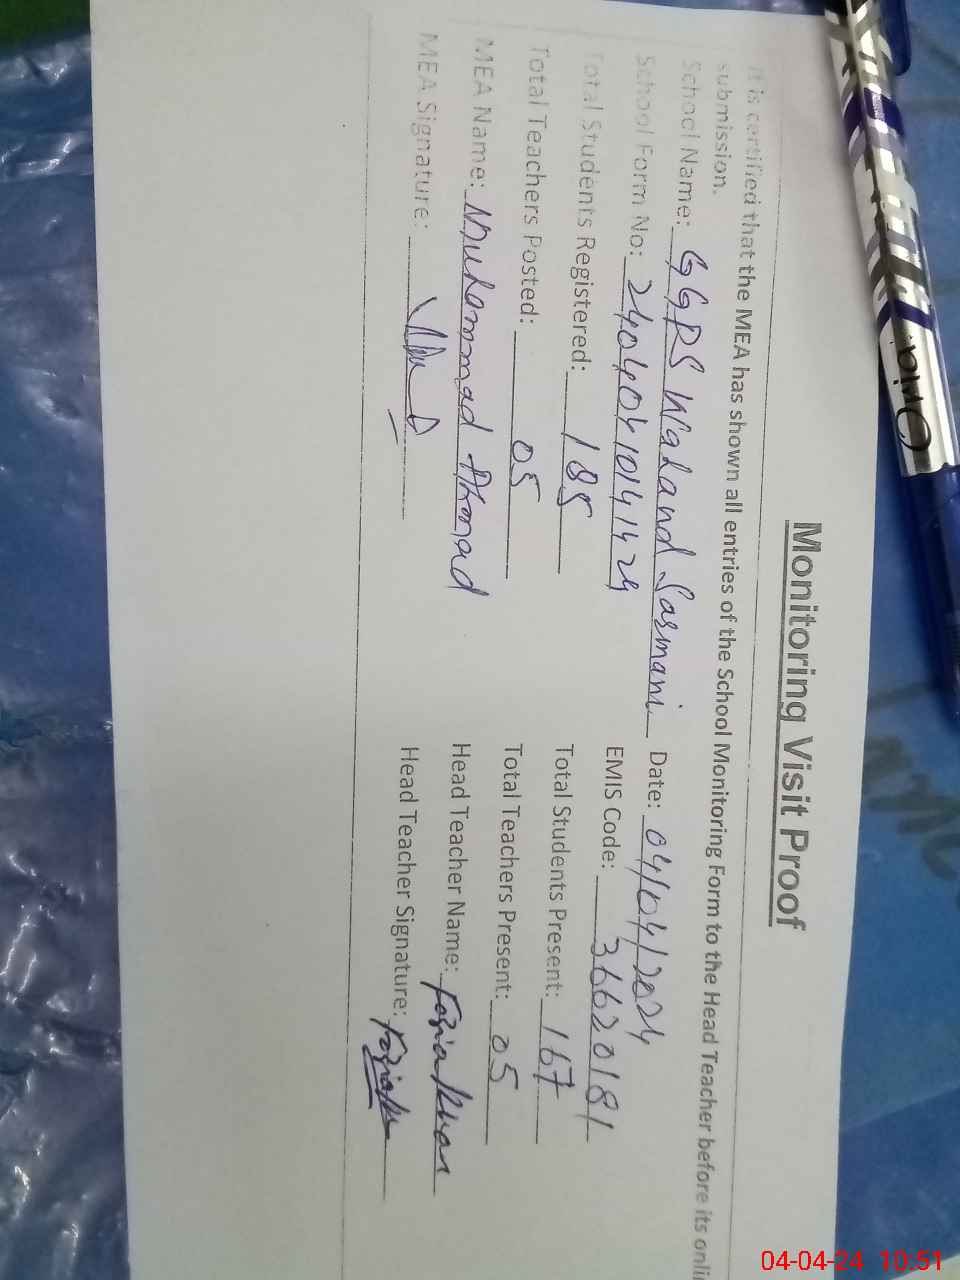 Monitoring Visit Proof
It is certified that the MEA has shown all entries of the School Monitoring Form to the Head Teacher before its onli
submission.
School Name: GGPS Waland Sasmani Date: 04/04/2024
School Form No: 24040410141424 EMIS Code: 36620181
Total Students Registered: 185 Total Students Present: 167
Total Teachers Posted: 05 Total Teachers Present: 05
MEA Name: Muhammad Ahmad Head Teacher Name: Fozia Khan
MEA Signature: Head Teacher Signature:
04-04-24 10:51